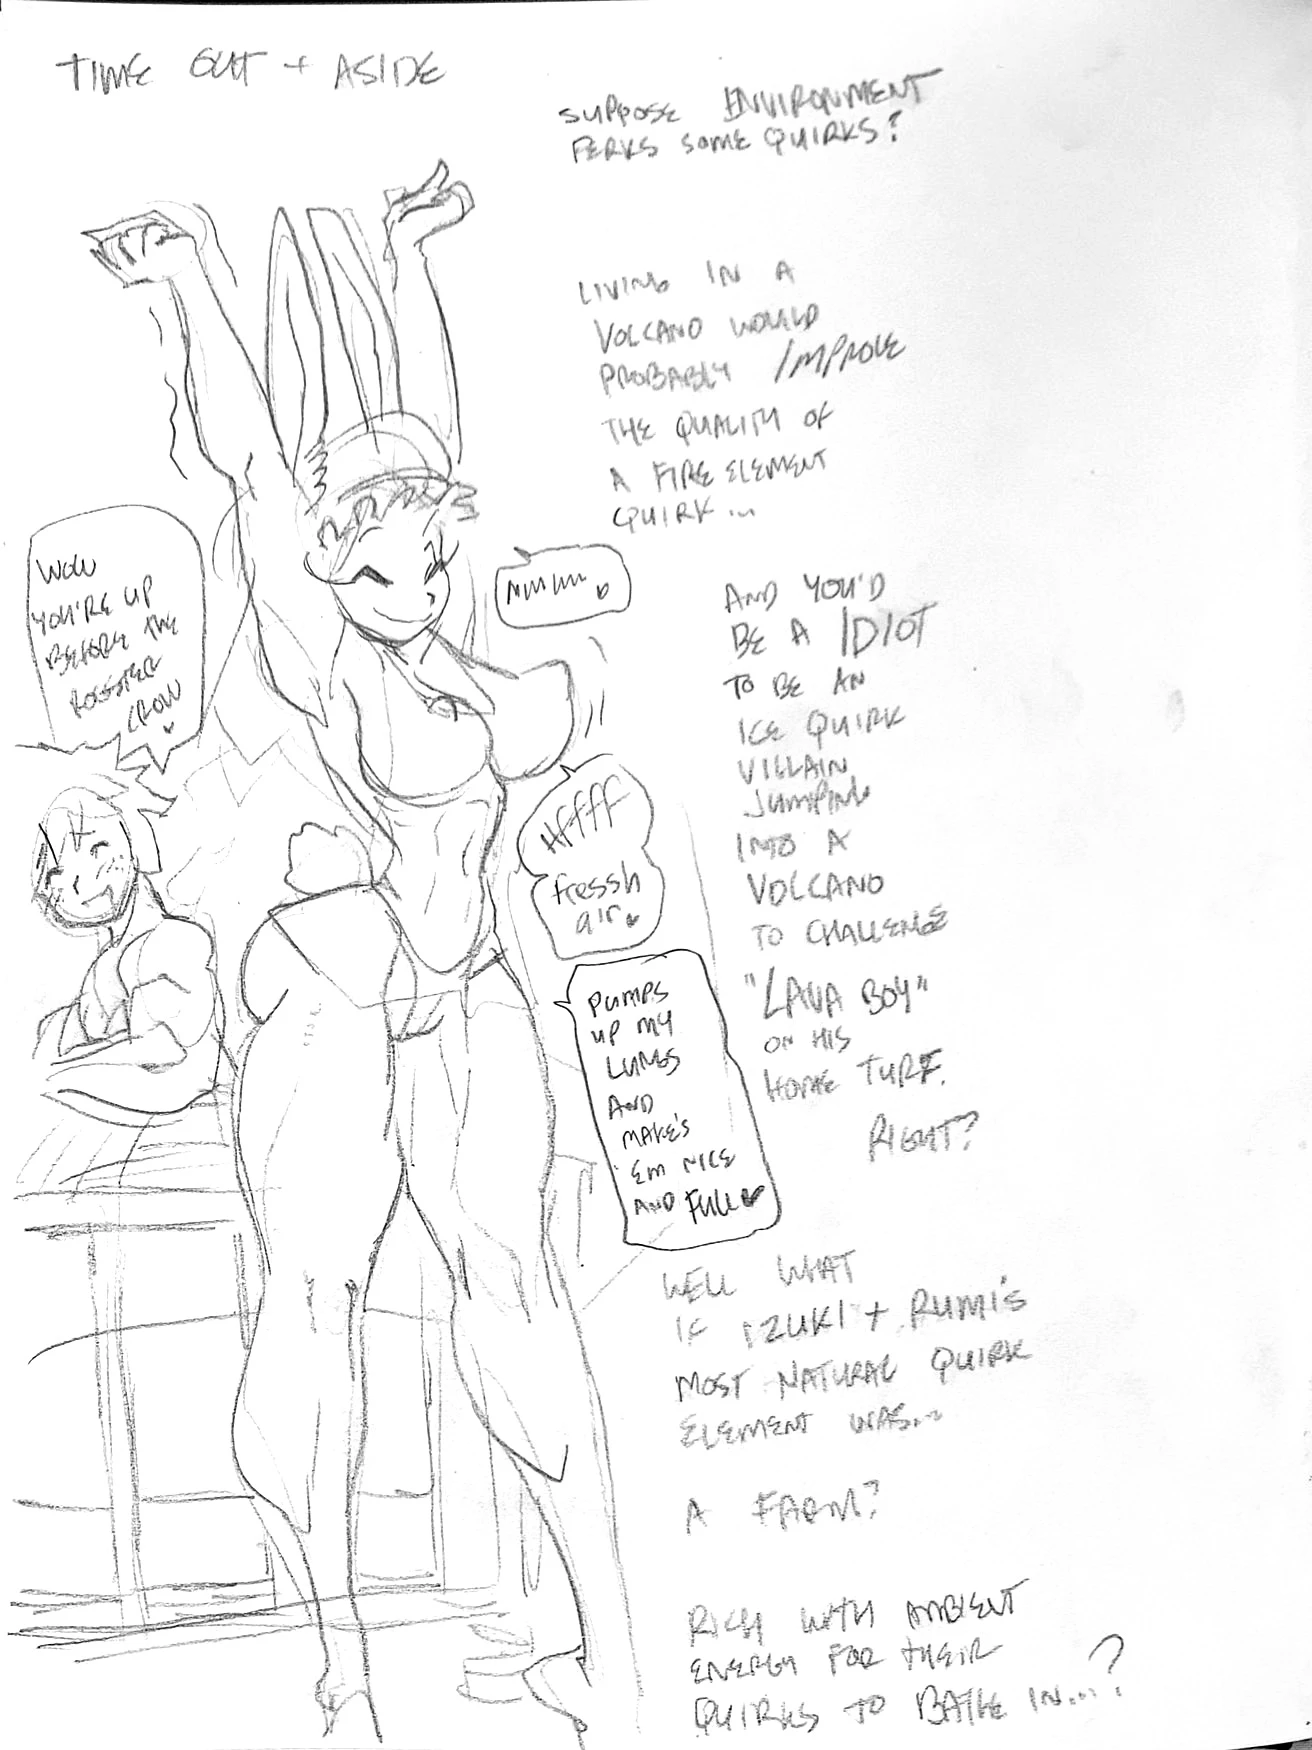 TIME OUT + ASIDE
SUPPOSE ENVIRONMENT
PERKS SOME QUIRKS?
LIVING IN A
VOLCANO WOULD
PROBABLY IMPROVE
THE QUALITY OF
A FIRE ELEMENT
QUIRK...
AND YOU'D
BE A IDIOT
TO BE AN
ICE QUIRK
VILLAIN
JUMPING
INTO A
VOLCANO
TO CHALLENGE
"LAVA BOY"
ON HIS
HOME TURF.
RIGHT?
WOW
YOU'RE UP
BEFORE THE
ROOSTER
CROW
MMMM
Hffff
fressh
air
PUMPS
UP MY
LUNGS
AND
MAKE'S
'EM NICE
AND FULL
WELL WHAT
IF IZUKI + RUMI'S
MOST NATURAL QUIRK
ELEMENT WAS...
A FARM?
RICH WITH AMBIENT
ENERGY FOR THEIR
QUIRKS TO BATHE IN...?